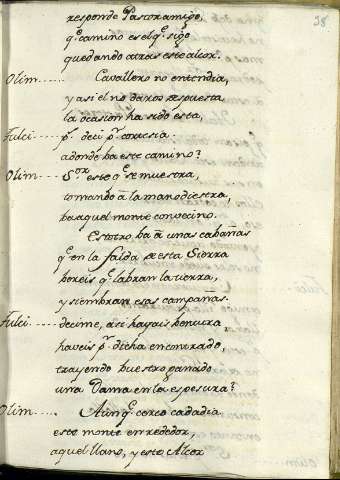 38
responde Pastor amigo,
q.e camino es el q.e sigo
quedando atras este alcor.
Olim..... Cavallero no entendia,
y asi el no daros respuesta
la ocasion ha sido esta,
Fulci..... p.r deci p.r cortesia
adonde ba este camino?
Olim..... S.or este q.e se muestra,
tomando â la mano diestra,
ba aquel monte convecino.
Estotro ba â unas cabañas
q.e en la falda de esta Sierra
bereis q.e labran la tierra,
y siembran esas campañas.
Fulci..... decime, asi hayais bentura,
haveis p.r dicha encontrado,
trayendo buestro ganado
una Dama en la espesura?
Olim..... Aunq.e cerco cada dia
este monte enrededor,
aquel llano, y este Alcor